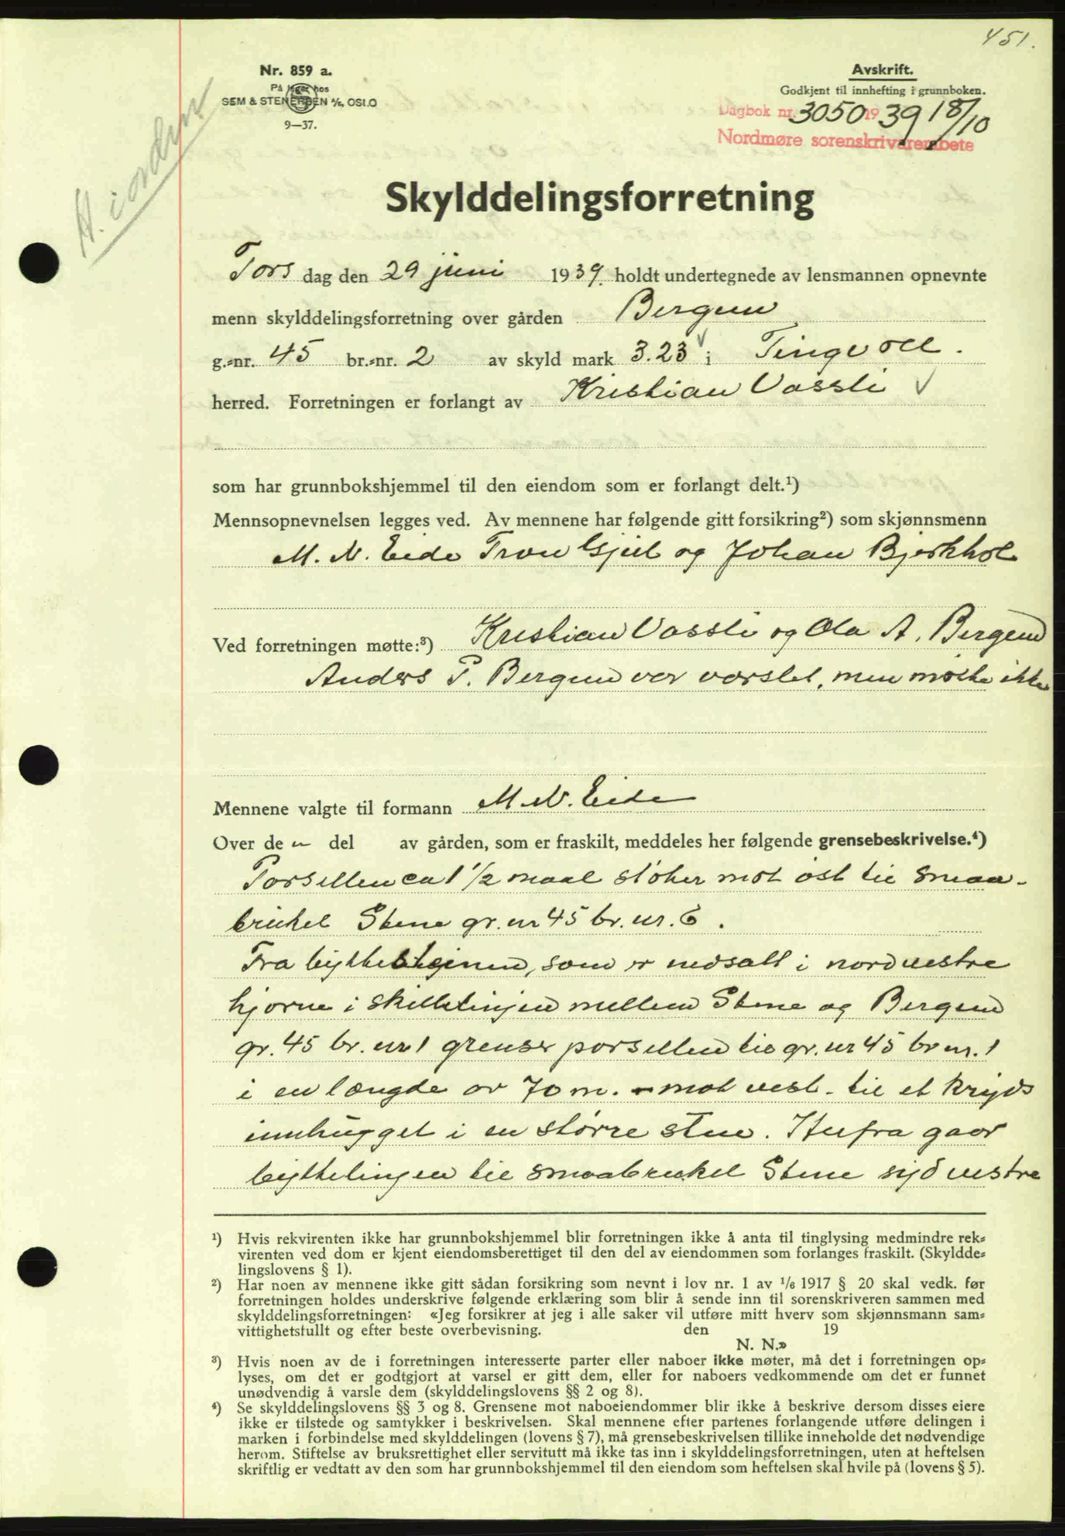 451.
Nr. 859 a.
På lager hos
SEM & STENERSEN A/S, OSLO
9—37.
Avskrift.
Godkjent til innhefting i grunnboken.
Dagbok nr. 3050 1939 18/10
Nordmøre sorenskriverembete
H. i orden
Skylddelingsforretning
Tors dag den 29 juni 1939. holdt undertegnede av lensmannen opnevnte
menn skylddelingsforretning over gården Bergem
g.-nr. 45 br.-nr. 2 av skyld mark 3.23 i Tingvoll.
herred. Forretningen er forlangt av Kristian Vassli
som har grunnbokshjemmel til den eiendom som er forlangt delt.¹)
Mennsopnevnelsen legges ved. Av mennene har følgende gitt forsikring²) som skjønnsmenn
M. N. Eide Tron Gjul og Johan Bjerkhol
Ved forretningen møtte:³) Kristian Vassli og Ola A. Bergem
Anders P. Bergem var varslet, men møtte ikke
Mennene valgte til formann M. N. Eide
Over de n del av gården, som er fraskilt, meddeles her følgende grensebeskrivelse.⁴)
Porsellen ca 1 1/2 maal støter mot øst til smaa-
bruket Stene gr. nr 45 br. nr. 6.
Fra byttesteinen, som er nedsatt i nordvestre
hjørne i skillelinjen mellem Stene og Bergem
gr. 45 br. nr 1 grenser porsellen til gr. nr 45 br nr. 1
i en længde av 70 m. mot vest. til et kryds
innhugget i en større sten. Herfra gaar
byttelinjen til smaabruket Stene sydvestre
¹) Hvis rekvirenten ikke har grunnbokshjemmel blir forretningen ikke å anta til tinglysing medmindre rek-
virenten ved dom er kjent eiendomsberettiget til den del av eiendommen som forlanges fraskilt. (Skyldde-
lingslovens § 1).
²) Har noen av mennene ikke gitt sådan forsikring som nevnt i lov nr. 1 av 1/6 1917 § 20 skal vedk. før
forretningen holdes underskrive følgende erklæring som blir å sende inn til sorenskriveren sammen med
skylddelingsforretningen: «Jeg forsikrer at jeg i alle saker vil utføre mitt hverv som skjønnsmann sam-
vittighetsfullt og efter beste overbevisning. den 19
N. N.»
³) Hvis noen av de i forretningen interesserte parter eller naboer ikke møter, må det i forretningen op-
lyses, om det er godtgjort at varsel er gitt dem, eller for naboers vedkommende om det er funnet
unødvendig å varsle dem (skylddelingslovens §§ 2 og 8).
⁴) Se skylddelingslovens §§ 3 og 8. Grensene mot naboeiendommer blir ikke å beskrive dersom disses eiere
ikke er tilstede og samtykker i beskrivelsen. Skal mennene efter partenes forlangende utføre delingen i
marken i forbindelse med skylddelingen (lovens § 7), må grensebeskrivelsen tillike inneholde det nødvendige
herom. Stiftelse av bruksrettighet eller servitutt må ikke tas inn i skylddelingsforretningen, uten at heftelsen
skriftlig er vedtatt av den som har grunnbokshjemmel til den eiendom som heftelsen skal hvile på (lovens § 5).